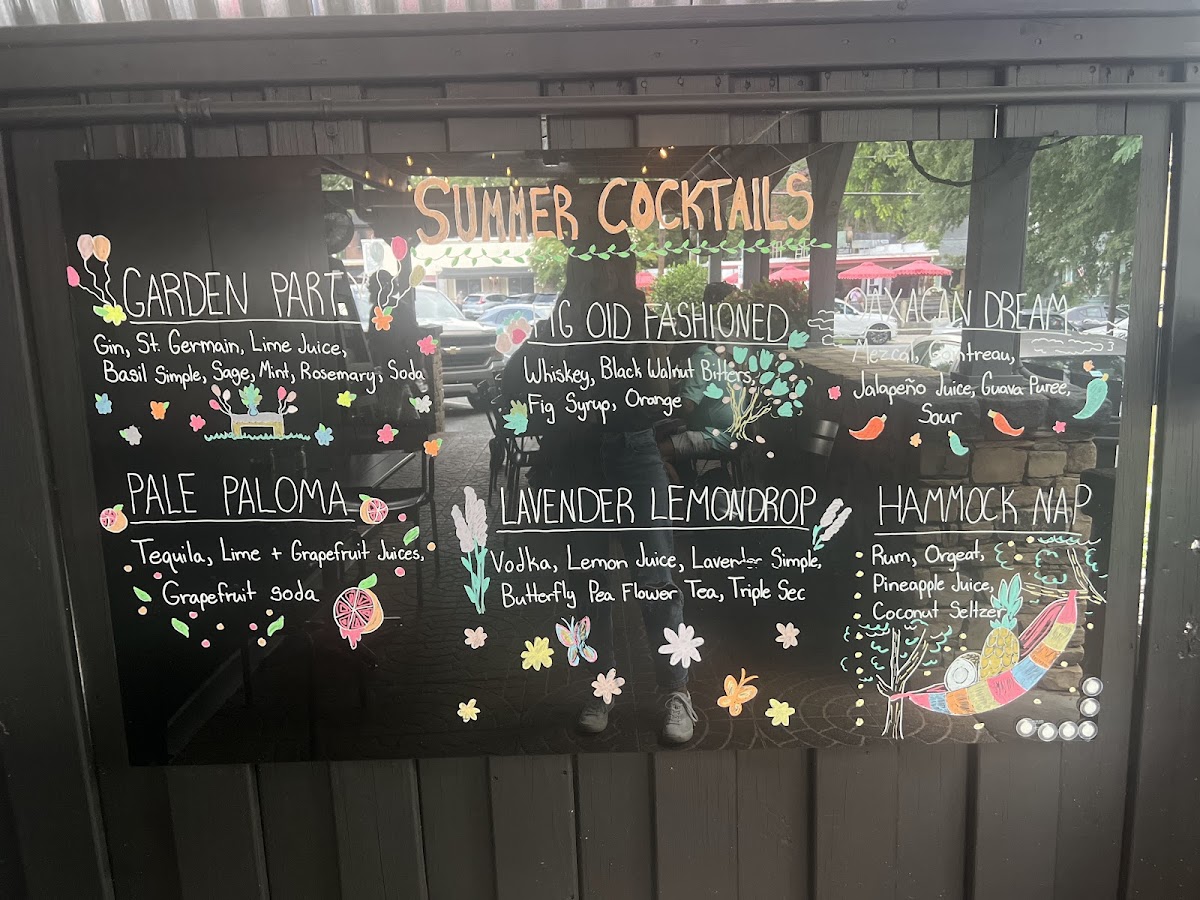 SUMMER COCKTAILS
GARDEN PARTY
Gin, St. Germain, Lime Juice,
Basil Simple, Sage, Mint, Rosemary, Soda
FIG OLD FASHIONED
Whiskey, Black Walnut Bitters,
Fig Syrup, Orange
OAXACAN DREAM
Mezcal, Cointreau,
Jalapeño Juice, Guava Puree,
Sour
PALE PALOMA
Tequila, Lime + Grapefruit Juices,
Grapefruit soda
LAVENDER LEMONDROP
Vodka, Lemon Juice, Lavender Simple,
Butterfly Pea Flower Tea, Triple Sec
HAMMOCK NAP
Rum, Orgeat,
Pineapple Juice,
Coconut Seltzer